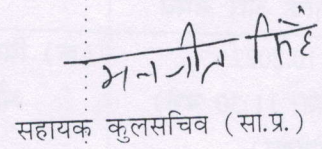 मनजीत सिंह
सहायक कुलसचिव (सा.प्र.)